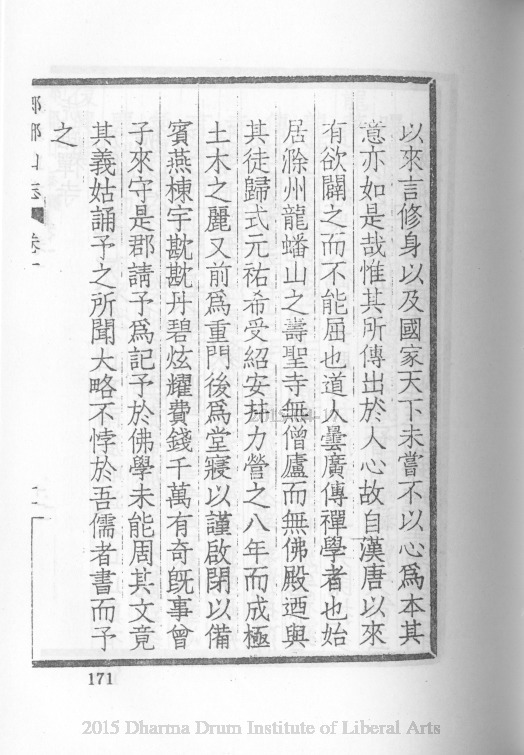 以來言修身以及國家天下未嘗不以心爲本其
意亦如是哉惟其所傳出於人心故自漢唐以來
有欲闢之而不能屈也道人曇廣傳禪學者也始
居滁州龍蟠山之壽聖寺無僧廬而無佛殿迺與
其徒歸式元祐希受紹安并力營之八年而成極
土木之麗又前爲重門後爲堂寢以謹啟閉以備
賓燕棟宇歎歎丹碧炫耀費錢千萬有奇旣事曾
子來守是郡請予爲記予於佛學未能周其文竟
其義姑誦予之所聞大略不悖於吾儒者書而予
之
山志 卷一
171
2015 Dharma Drum Institute of Liberal Arts